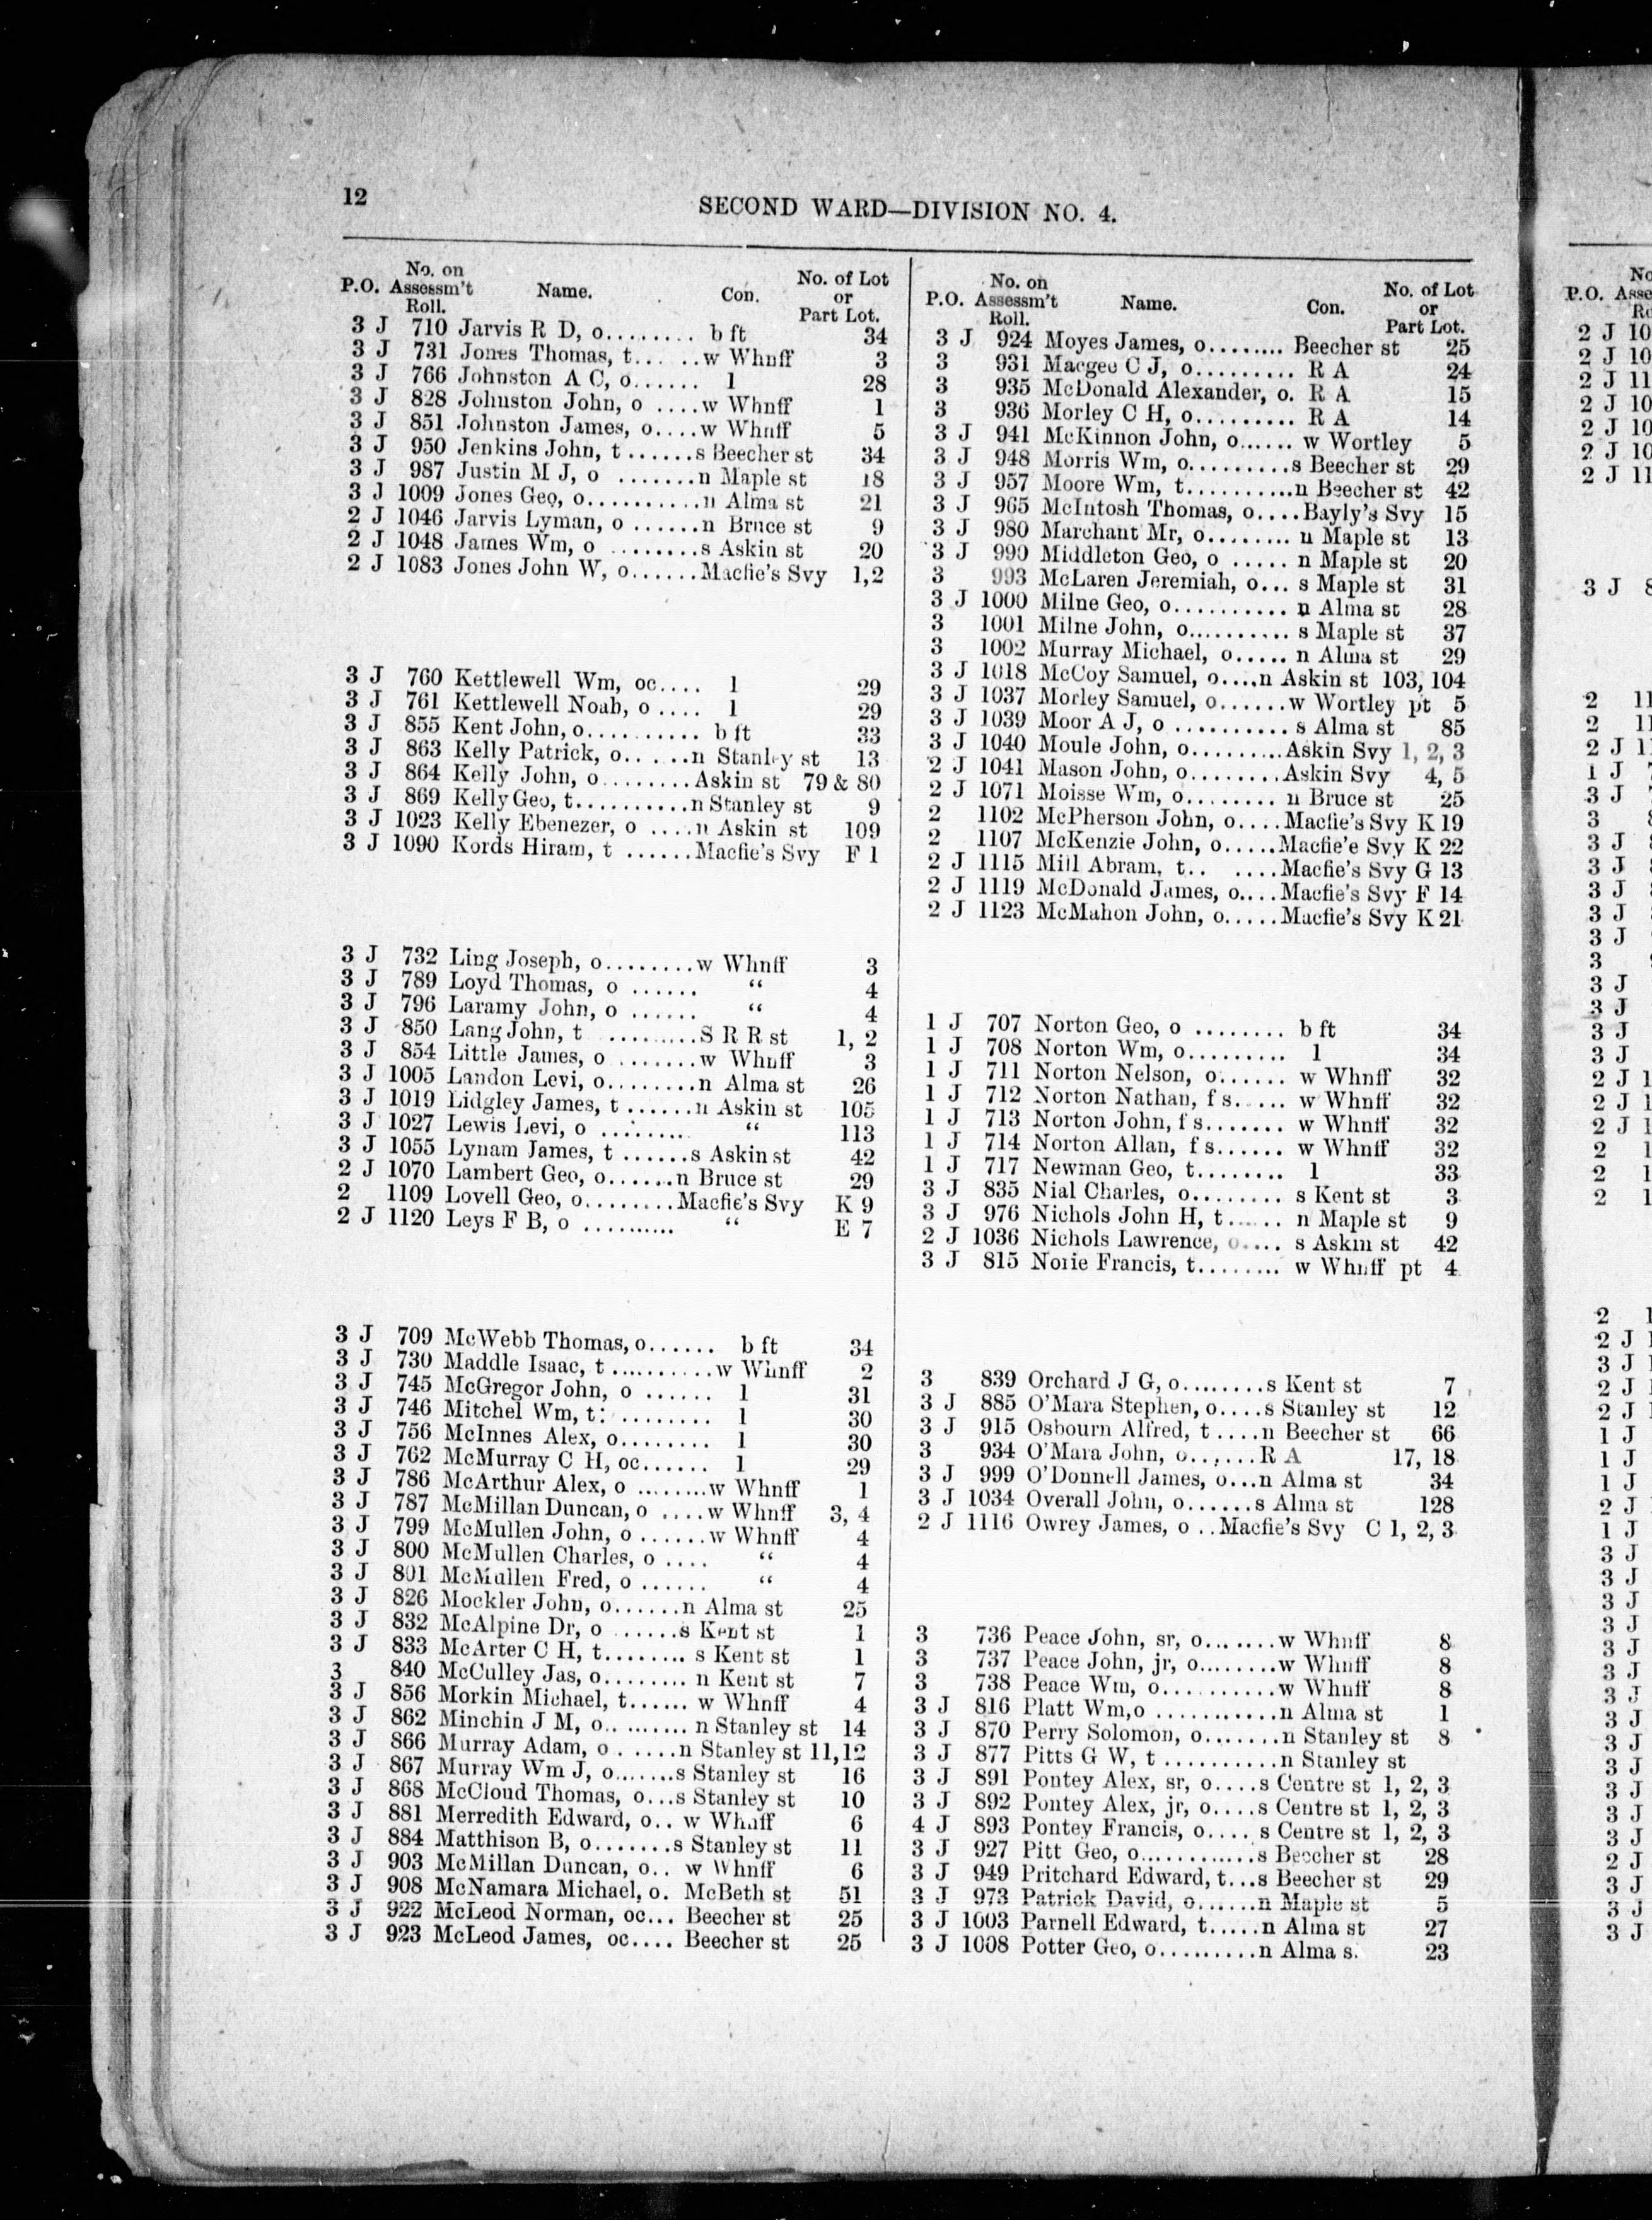 12
SECOND WARD—DIVISION NO. 4.
P.O. No. on Assessm't Roll. Name. Con. No. of Lot or Part Lot.
3 J 710 Jarvis R D, o......... b ft 34
3 J 731 Jones Thomas, t......w Whnff 3
3 J 766 Johnston A C, o...... 1 28
3 J 828 Johnston John, o ....w Whnff 1
3 J 851 Johnston James, o....w Whnff 5
3 J 950 Jenkins John, t ......s Beecher st 34
3 J 987 Justin M J, o .......n Maple st 18
3 J 1009 Jones Geo, o...........n Alma st 21
2 J 1046 Jarvis Lyman, o ......n Bruce st 9
2 J 1048 James Wm, o ........s Askin st 20
2 J 1083 Jones John W, o......Macfie's Svy 1,2
3 J 760 Kettlewell Wm, oc.... 1 29
3 J 761 Kettlewell Noah, o .... 1 29
3 J 855 Kent John, o.......... b ft 33
3 J 863 Kelly Patrick, o......n Stanley st 13
3 J 864 Kelly John, o.........Askin st 79 & 80
3 J 869 Kelly Geo, t..........n Stanley st 9
3 J 1023 Kelly Ebenezer, o ....n Askin st 109
3 J 1090 Kords Hiram, t ......Macfie's Svy F 1
3 J 732 Ling Joseph, o........w Whnff 3
3 J 789 Loyd Thomas, o ...... “ 4
3 J 796 Laramy John, o ...... “ 4
3 J 850 Lang John, t .........S R R st 1, 2
3 J 854 Little James, o ........w Whnff 3
3 J 1005 Landon Levi, o........n Alma st 26
3 J 1019 Lidgley James, t ......n Askin st 105
3 J 1027 Lewis Levi, o ......... “ 113
3 J 1055 Lynam James, t ......s Askin st 42
2 J 1070 Lambert Geo, o.......n Bruce st 29
2 1109 Lovell Geo, o........Macfie's Svy K 9
2 J 1120 Leys F B, o .......... “ E 7
3 J 709 McWebb Thomas, o...... b ft 34
3 J 730 Maddle Isaac, t ..........w Whnff 2
3 J 745 McGregor John, o ...... 1 31
3 J 746 Mitchel Wm, t: ......... 1 30
3 J 756 McInnes Alex, o........ 1 30
3 J 762 McMurray C H, oc...... 1 29
3 J 786 McArthur Alex, o ........w Whnff 1
3 J 787 McMillan Duncan, o ....w Whnff 3, 4
3 J 799 McMullen John, o ......w Whnff 4
3 J 800 McMullen Charles, o .... “ 4
3 J 801 McMullen Fred, o ...... “ 4
3 J 826 Mockler John, o......n Alma st 25
3 J 832 McAlpine Dr, o ......s Kent st 1
3 J 833 McArter C H, t........ s Kent st 1
3 840 McCulley Jas, o......... n Kent st 7
3 J 856 Morkin Michael, t...... w Whnff 4
3 J 862 Minchin J M, o.. ........ n Stanley st 14
3 J 866 Murray Adam, o ......n Stanley st 11,12
3 J 867 Murray Wm J, o.......s Stanley st 16
3 J 868 McCloud Thomas, o...s Stanley st 10
3 J 881 Merredith Edward, o.. w Whnff 6
3 J 884 Matthison B, o.......s Stanley st 11
3 J 903 McMillan Duncan, o.. w Whnff 6
3 J 908 McNamara Michael, o. McBeth st 51
3 J 922 McLeod Norman, oc... Beecher st 25
3 J 923 McLeod James, oc.... Beecher st 25
P.O. No. on Assessm't Roll. Name. Con. No. of Lot or Part Lot.
3 J 924 Moyes James, o......... Beecher st 25
3 931 Macgee C J, o.......... R A 24
3 935 McDonald Alexander, o. R A 15
3 936 Morley C H, o.......... R A 14
3 J 941 McKinnon John, o...... w Wortley 5
3 J 948 Morris Wm, o.........s Beecher st 29
3 J 957 Moore Wm, t..........n Beecher st 42
3 J 965 McIntosh Thomas, o....Bayly's Svy 15
3 J 980 Marchant Mr, o........ n Maple st 13
3 J 990 Middleton Geo, o ..... n Maple st 20
3 993 McLaren Jeremiah, o... s Maple st 31
3 J 1000 Milne Geo, o.......... n Alma st 28
3 1001 Milne John, o.......... s Maple st 37
3 1002 Murray Michael, o..... n Alma st 29
3 J 1018 McCoy Samuel, o....n Askin st 103, 104
3 J 1037 Morley Samuel, o......w Wortley pt 5
3 J 1039 Moor A J, o .......... s Alma st 85
3 J 1040 Moule John, o.........Askin Svy 1, 2, 3
2 J 1041 Mason John, o........Askin Svy 4, 5
2 J 1071 Moisse Wm, o........ n Bruce st 25
2 1102 McPherson John, o....Macfie's Svy K 19
2 1107 McKenzie John, o.....Macfie'e Svy K 22
2 J 1115 Mill Abram, t.. ....Macfie's Svy G 13
2 J 1119 McDonald James, o....Macfie's Svy F 14
2 J 1123 McMahon John, o.....Macfie's Svy K 21
1 J 707 Norton Geo, o ........ b ft 34
1 J 708 Norton Wm, o......... 1 34
1 J 711 Norton Nelson, o...... w Whnff 32
1 J 712 Norton Nathan, f s..... w Whnff 32
1 J 713 Norton John, f s....... w Whnff 32
1 J 714 Norton Allan, f s...... w Whnff 32
1 J 717 Newman Geo, t........ 1 33
3 J 835 Nial Charles, o........ s Kent st 3
3 J 976 Nichols John H, t...... n Maple st 9
2 J 1036 Nichols Lawrence, o.... s Askin st 42
3 J 815 Norie Francis, t........ w Whnff pt 4
3 839 Orchard J G, o........s Kent st 7
3 J 885 O'Mara Stephen, o....s Stanley st 12
3 J 915 Osbourn Alfred, t ....n Beecher st 66
3 934 O'Mara John, o......R A 17, 18
3 J 999 O'Donnell James, o...n Alma st 34
3 J 1034 Overall John, o......s Alma st 128
2 J 1116 Owrey James, o ..Macfie's Svy C 1, 2, 3
3 736 Peace John, sr, o.......w Whnff 8
3 737 Peace John, jr, o........w Whnff 8
3 738 Peace Wm, o...........w Whnff 8
3 J 816 Platt Wm,o ............n Alma st 1
3 J 870 Perry Solomon, o.......n Stanley st 8
3 J 877 Pitts G W, t ...........n Stanley st
3 J 891 Pontey Alex, sr, o....s Centre st 1, 2, 3
3 J 892 Pontey Alex, jr, o....s Centre st 1, 2, 3
4 J 893 Pontey Francis, o..... s Centre st 1, 2, 3
3 J 927 Pitt Geo, o............s Beecher st 28
3 J 949 Pritchard Edward, t...s Beecher st 29
3 J 973 Patrick David, o.......n Maple st 5
3 J 1003 Parnell Edward, t.....n Alma st 27
3 J 1008 Potter Geo, o..........n Alma s. 23